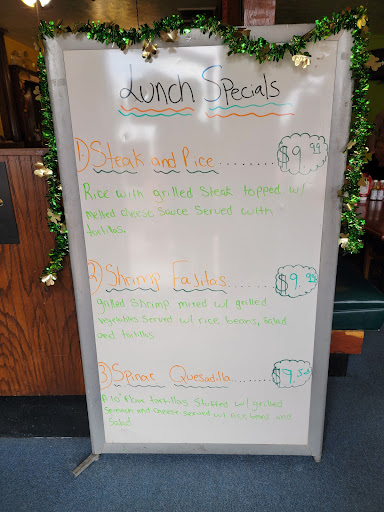 Lunch Specials
1) Steak and Rice........ $9.99
Rice with grilled steak topped w/
melted cheese sauce served with
tortillas.
2) Shrimp Fajitas...... $9.99
grilled shrimp mixed w/ grilled
vegetables served w/ rice, beans, salad
and tortillas
3) Spinac Quesadilla........ $7.50
A 10" flour tortillas stuffed w/ grilled
spinach and cheese served w/ rice beans and
salad